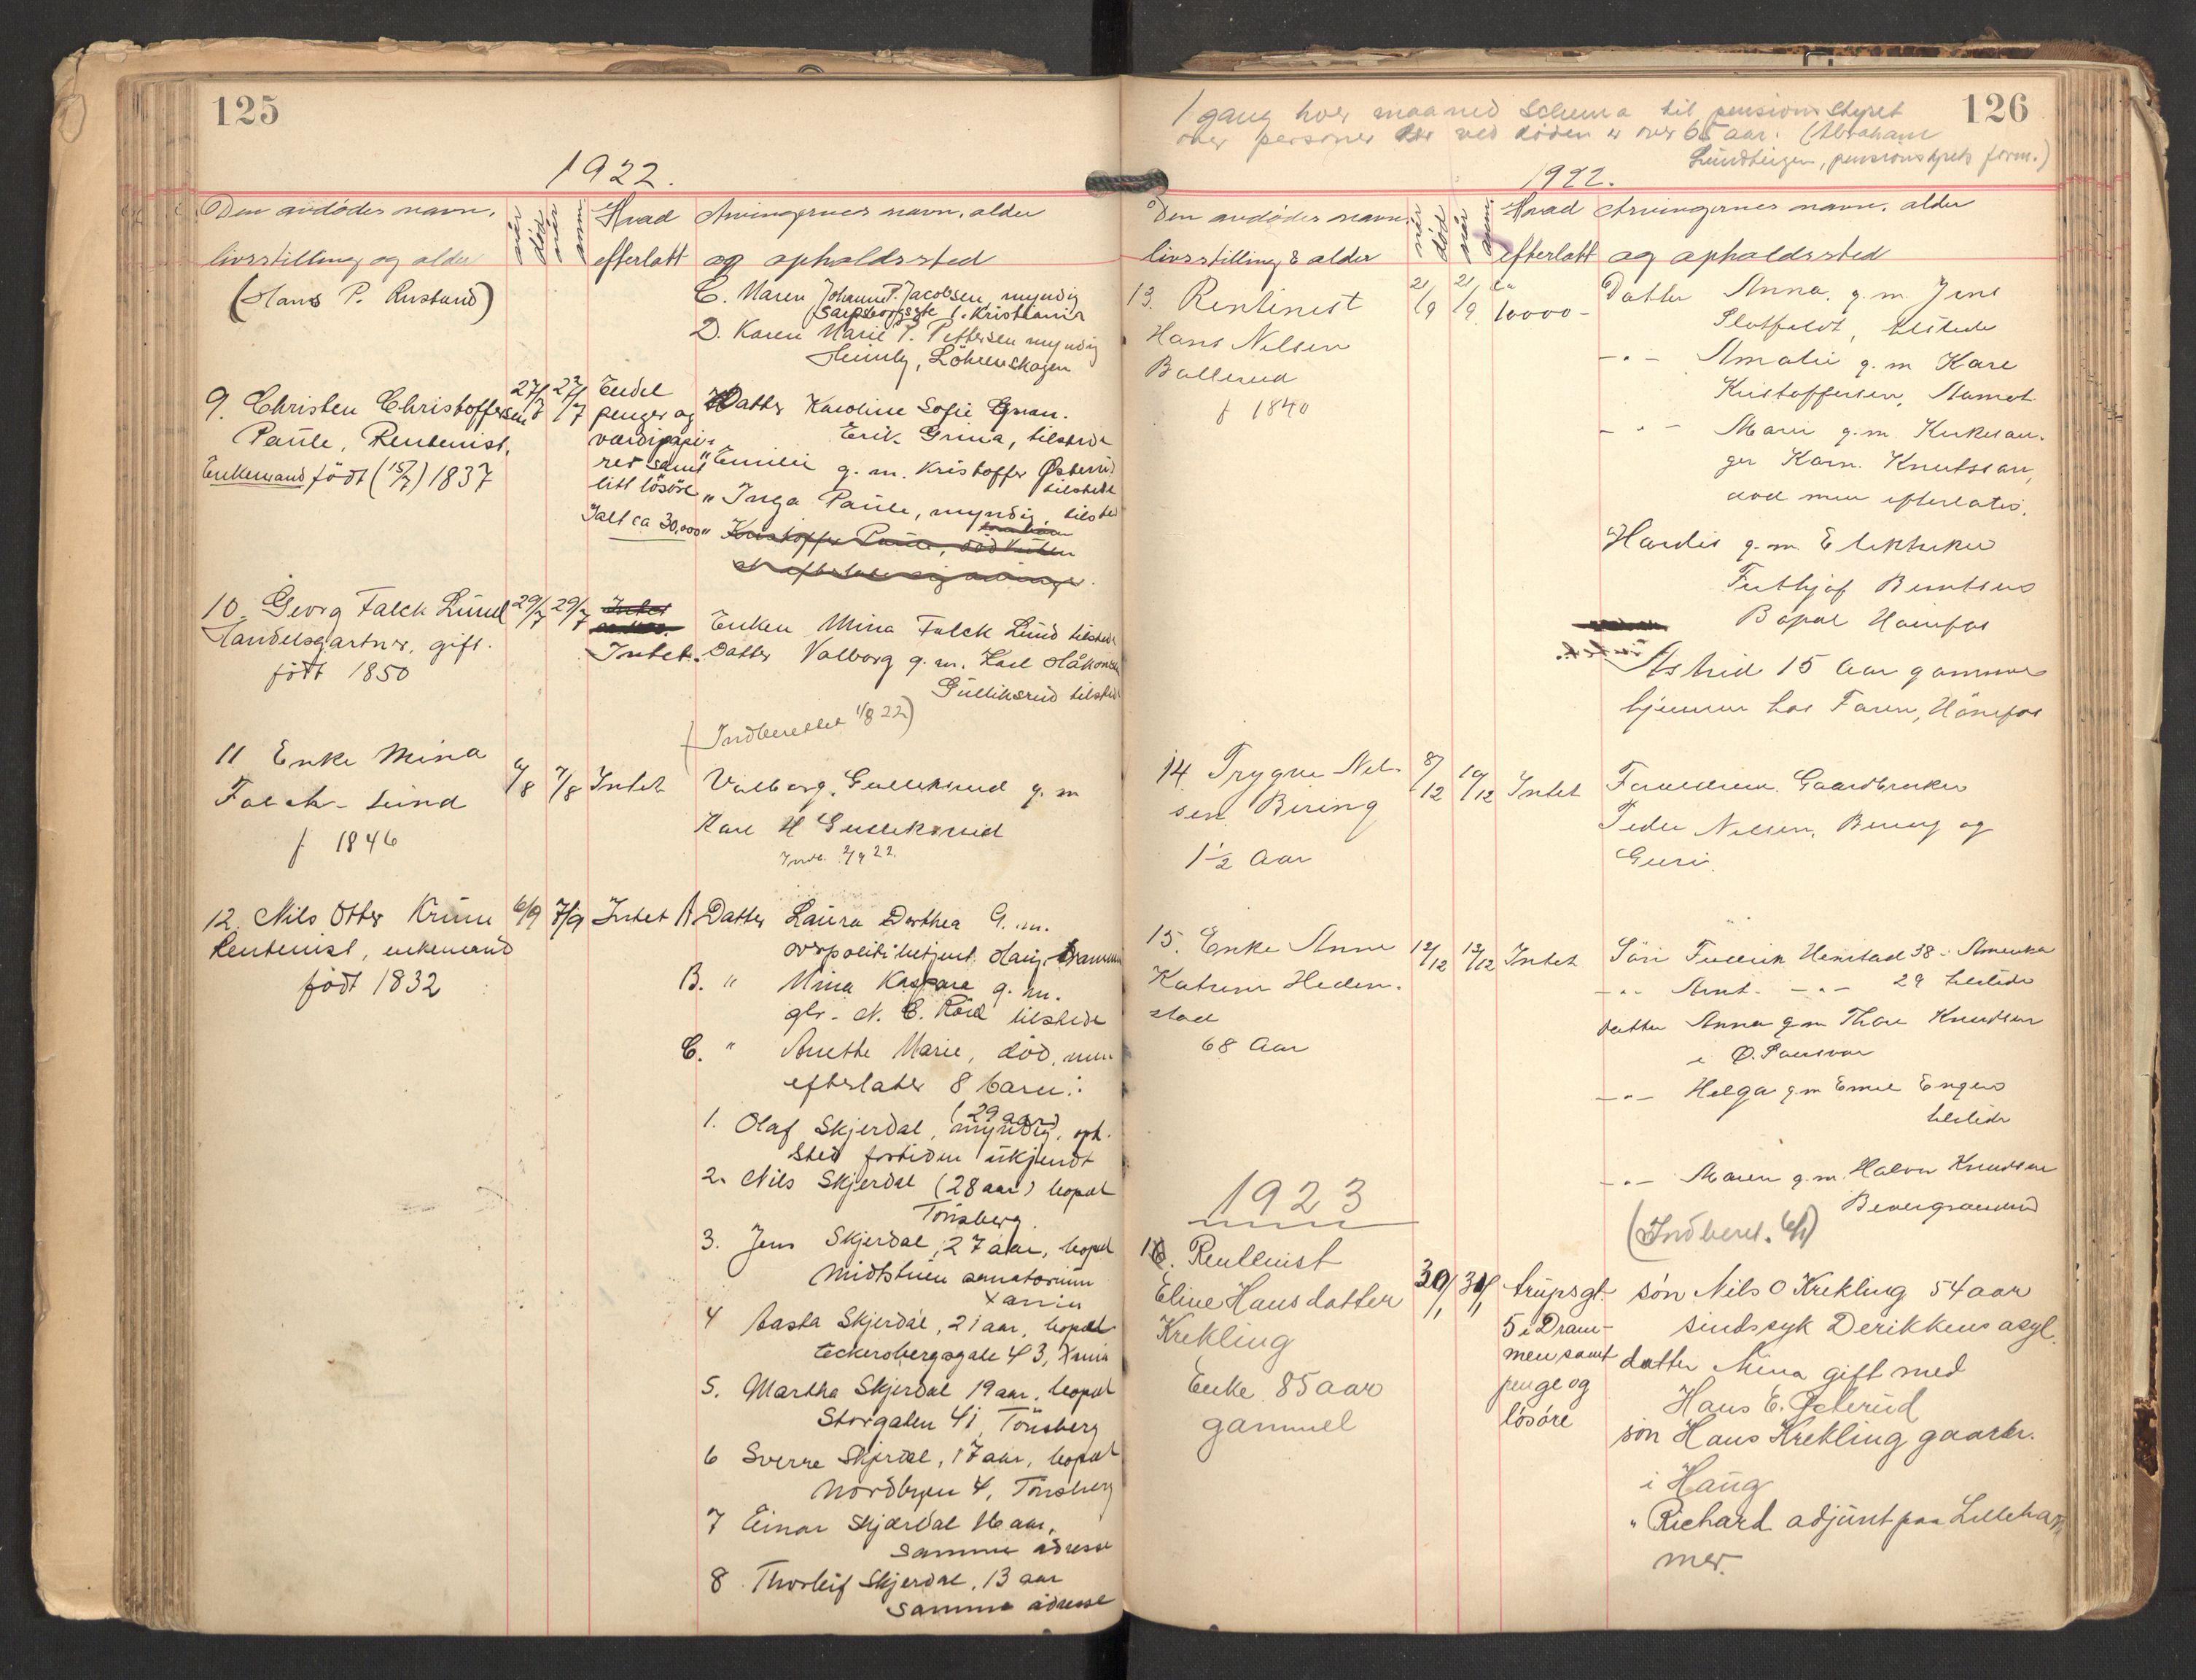 125
1922.
Den avdødes navn,
livsstilling og alder
når død
når anm.
Hvad
efterlatt
Arvingernes navn, alder
og opholdssted
(Hans P. Rustand)
C. Maren Johanne P. Jacobsen, myndig
Sarpsborggte 1. Kristiania
D. Karen Marie P. Pettersen myndig
Heimly, Löhrenskogen
9. Christen Christoffersen
Paule, Rentenist,
Enkemand født (15/7) 1837
27/7 27/7
Endel
penger og
værdipapi-
rer samt
litt løsøre
Ialt ca 30,000
Datter Karoline Sofie Gman.
Erik Grina, tilstede
" Emilie g. m. Kristoffer Østerud
tilstede
" Inga Paule, myndig, tilsted
" Kristoffer Paule, død uten
at efterlate sig arvinger.
10. Georg Falck Lund
Handelsgartner, gift.
født 1850
29/7 29/7
Intet
Intet.
Enken Mina Falck Lund tilstede
Datter Valborg g. m. Karl Håkonsen
Gulliksrud tilsted
(Indberettet 1/8 22)
11 Enke Mina
Falck-Lund
f 1846
6/8 7/8 Intet
Valborg Gulliksrud g. m
Karl H Gulliksrud
Indb. 2/9 22.
12. Nils Otter Krinn
Rentenist, enkemand
født 1832
6/9 7/9 Intet
A Datter Laura Dorthea G. m.
overpolitibetjent Haug, Drammen
B. " Mina Kaspara g. m.
gbr. N. C. Röed tilstede
C. " Anette Marie, død, men
efterlater 8 barn:
1. Olaf Skjerdal, (29 aar) myndig, oph.
sted fortiden ukjendt
2. Nils Skjerdal (28 aar) bopæl
Tönsberg.
3. Jens Skjerdal, 27 aar, bopæl
Midtstuen sanatorium
Xania
4 Aasta Skjerdal, 21 aar, bopæl
Eckersbergsgate 43, Xania
5. Martha Skjerdal 19 aar, bopæl
Storgaten 41, Tönsberg
6 Sverre Skjerdal, 17 aar, bopæl
Nordbyen 4, Tönsberg
7 Einar Skjerdal 16 aar,
samme adresse
8 Thorleif Skjerdal, 13 aar
samme adresse
126
1 gang hver maaned schema til pensionsstyret
over personer der ved døden er over 65 aar. (Abraham
pensionsstyrets form.)
1922.
Den avdødes navn,
livsstilling & alder
når død
når anm.
Hvad
efterlatt
Arvingernes navn, alder
og opholdssted
13. Rentinist
Hans Nelsen
Ballerud
f 1840
21/9 21/9 ca
10000-
Datter Anna, g. m. Jens
Slotfeldt, tilstede
-"- Amalie g. m Kare
Kristoffersen, Aamot
-"- Marie g. m. Kirkesan-
ger Korn. Knutssøn,
død men efterlater.
Hardis g. m. Elektriker
Frithjof Berntsen
Bopæl Hønefos
Astrid 15 Aar gammel
hjemme hos Faren, Hönefos
14 Trygve Nel-
sen Biring
1 1/2 Aar
8/12 10/12 Intet
Forældrene Gaardbruker
Peder Nelsen, Bering og
Guri.
15. Enke Anne
Katrine Heden-
stad
68 Aar
12/12 12/12 Intet
Sön Fredrik Henstad 38 - Amerika
-"- Arnt -"- 29 tilstede
datter Anna g m Thore Knudsen
i Ø.
-"- Helga g m Emil Engen
tilstede
-"- Maren g. m. Halvor Knudsen
(Indberet. 6/1)
1923
1. Rentenist
Eline Hansdatter
Krekling
Enke 85 aar
gammel
30/1 31/1
Strupsgt.
5 i Dram-
men samt
penge og
løsøre
søn Nils O Krekling 54 aar
sindssyk Derikkens asyl.
datter Mina gift med
Hans E. Østerud
søn Hans Krekling gaardbr.
i Haug
" Richard adjunt paa Lilleham
mer.